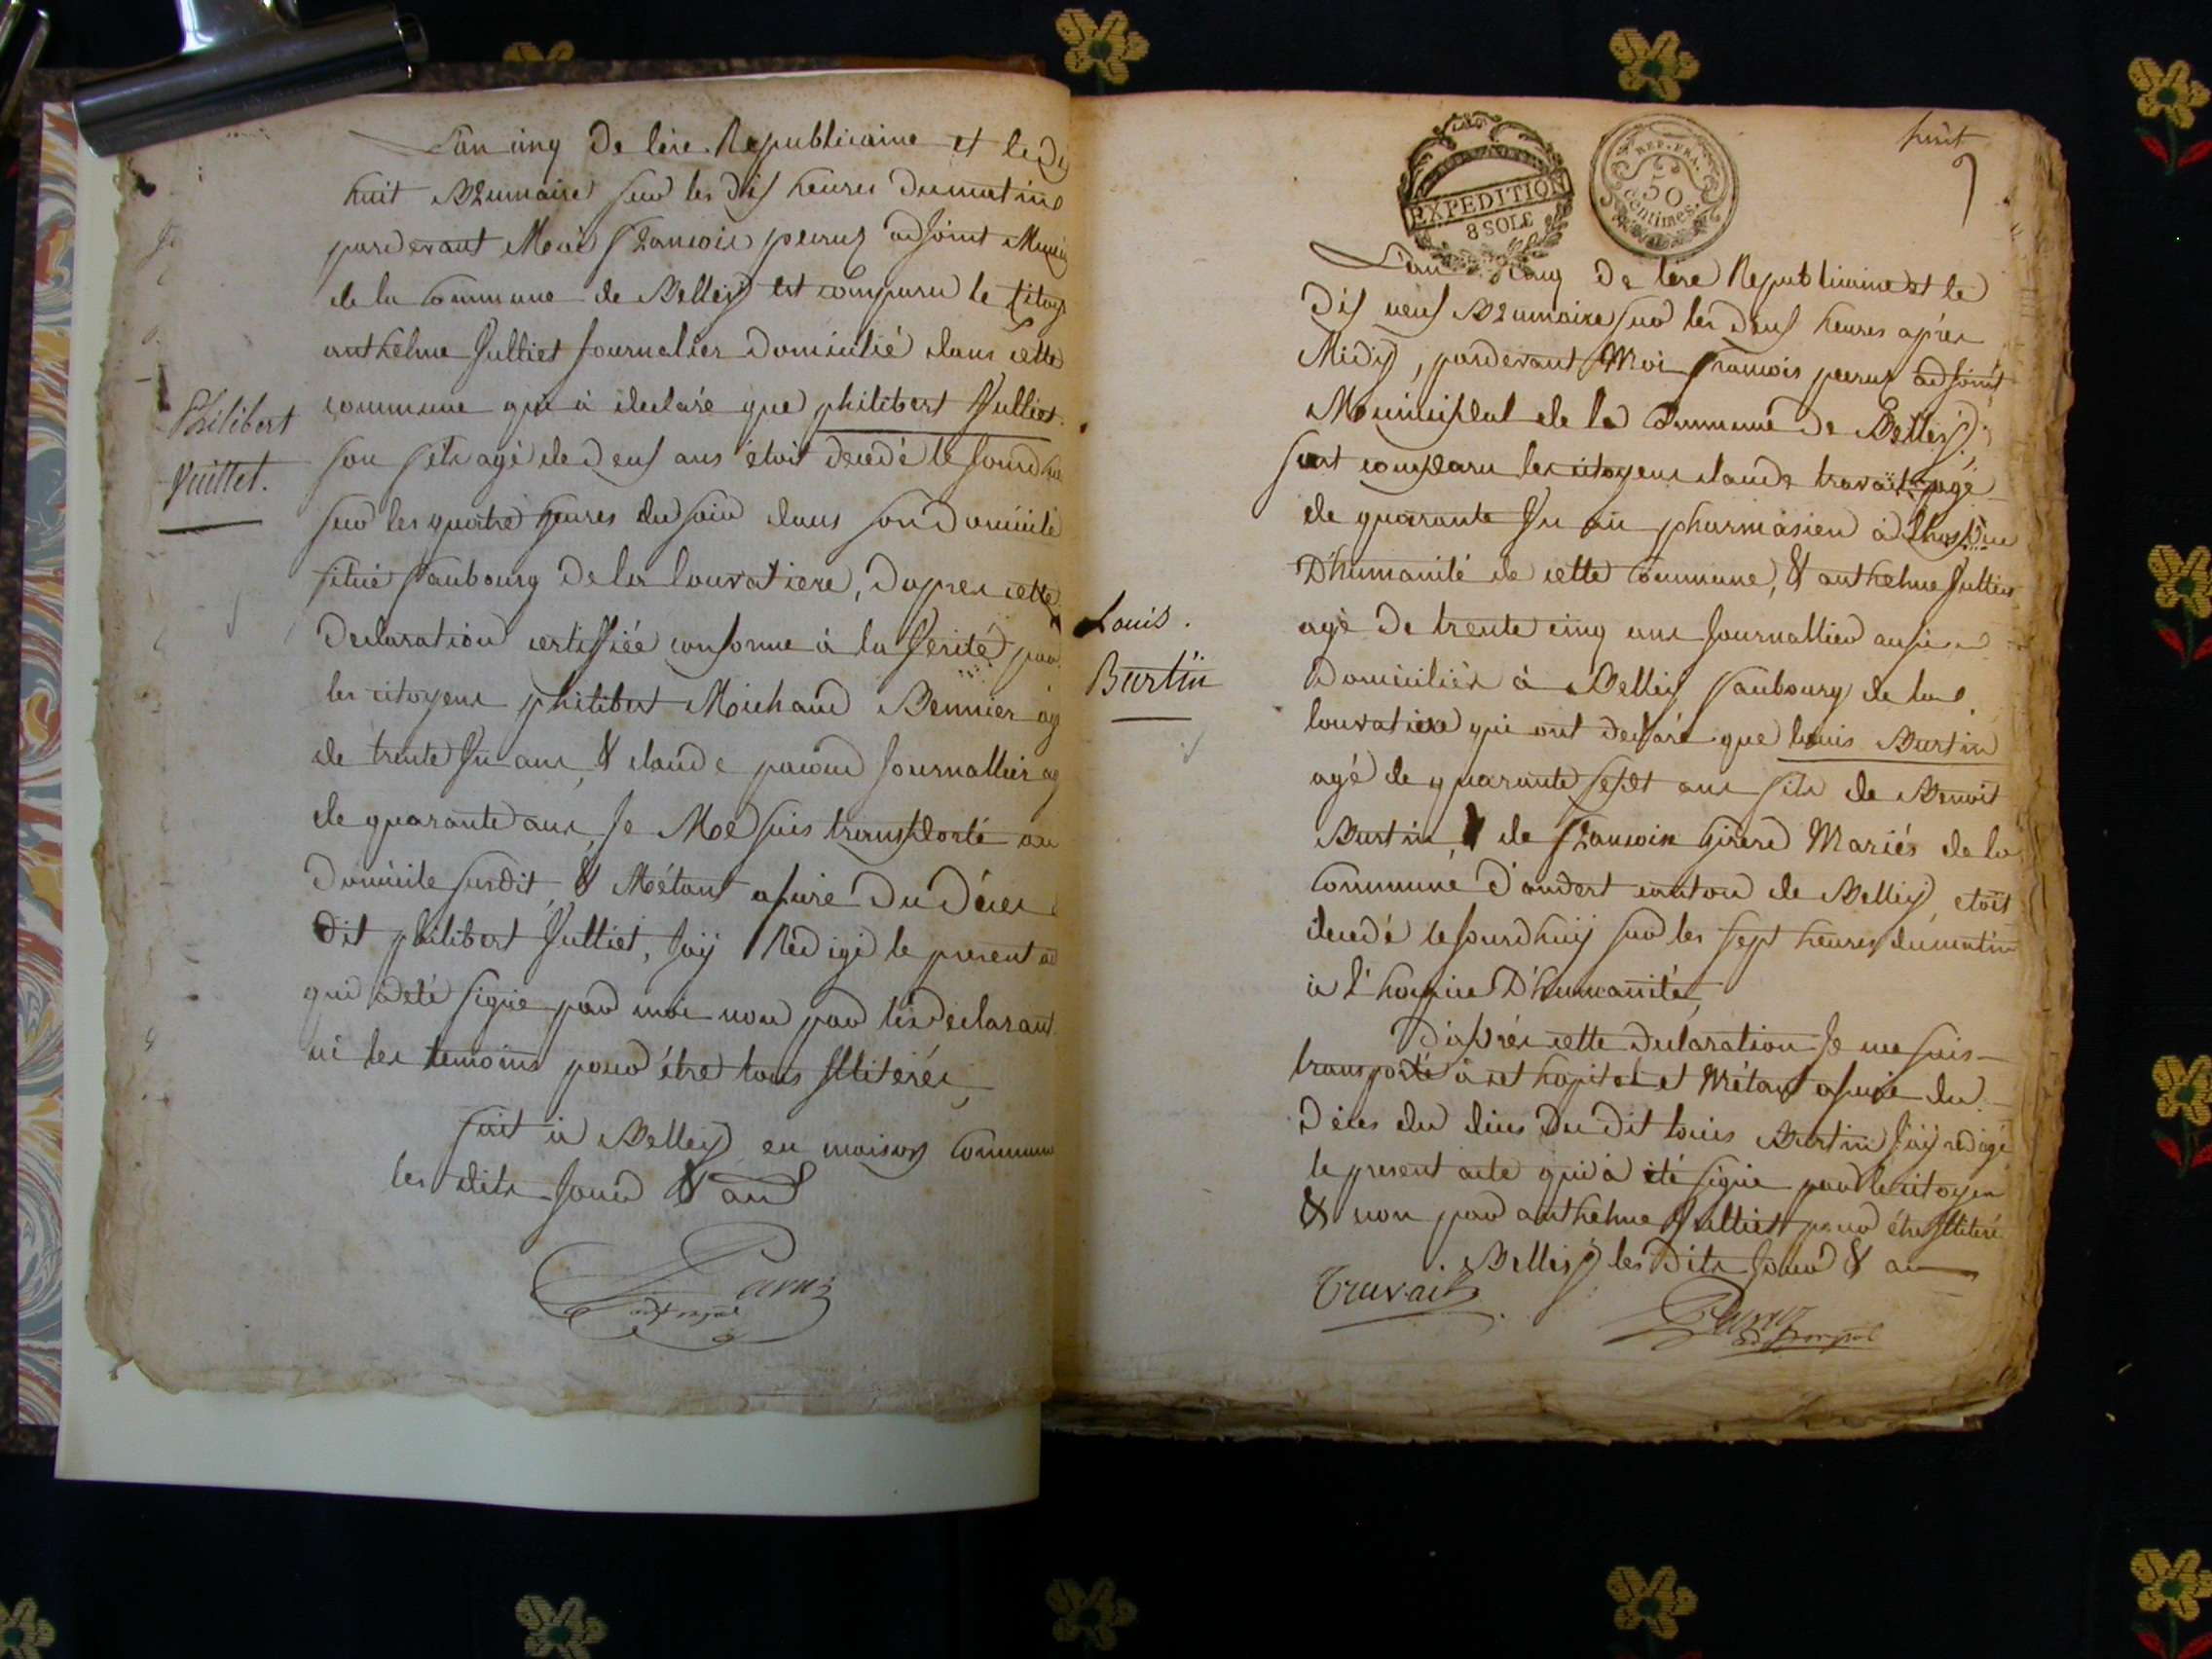 L'an cinq De lére Republicaine et le Di
huit Brumaire sur les Dix heures Du matin
pardevant Moi François peruz adjoint Munici
de la Commune de Belley est comparu le Citoye
anthelme Julliet Journalier Domicilié dans cette
commune qui à declaré que philibert Julliet
son fils agé de Deux ans étoit decedé le Jourdhui
sur les quatre heures du soir dans son Domicile
situé faubourg De la louvatiere, D'apres cette
Declaration certiffiée conforme à la Vérité par
les citoyens philibert Michaud Bennier agé
de trente Un ans, & claude Journallier agé
de quarante ans, Je Me suis transporté au
Domicile susdit, & Métant assuré Du Décès
Dit philibert Julliet, J'ay Redigé le present
qui a été signé par moi non par les Declarant
ni les temoins pour être tous Illiterés
fait à Belley en maison Commune
les dits Jour & an
Peruz
adjt mpal
Philibert
Juillet.
huit
EXPEDITION
8 SOLS
REP. FRA.
50
centimes.
L'an cinq De lére Republicaine et le
Dix neuf Brumaire sur les Deux heures après
Midy, pardevant Moi francois peruz adjoint
Municipal de la Commune De Belley,
sont comparu les citoyens claude travail agé
de quarante Un an pharmasien à Lhospice
D'humanité de cette Commune, & anthelme Julliet
agé De trente cinq ans Journallier aussi
Domiciliés à Belley faubourg de la
louvatiere qui ont declaré que louis Burtin
agé de quarante sept ans fils de Benoit
Burtin, & de francoise Girerd Mariés de la
Commune D'andert canton de Belley, étoit
decedé le Jourdhuy sur les sept heures du matin
à l'hospice D'humanité,
D'après cette declaration Je me suis
transporté à cet hopital et Métant assuré du
Décés du Du Dit louis Burtin J'ay redigé
le present acte qui à été signé par le citoyen
& non par anthelme Julliet pour être Illiteré
Belley les Dits Jour & an
Travail
Peruz
adjt mpal
Louis.
Burtin